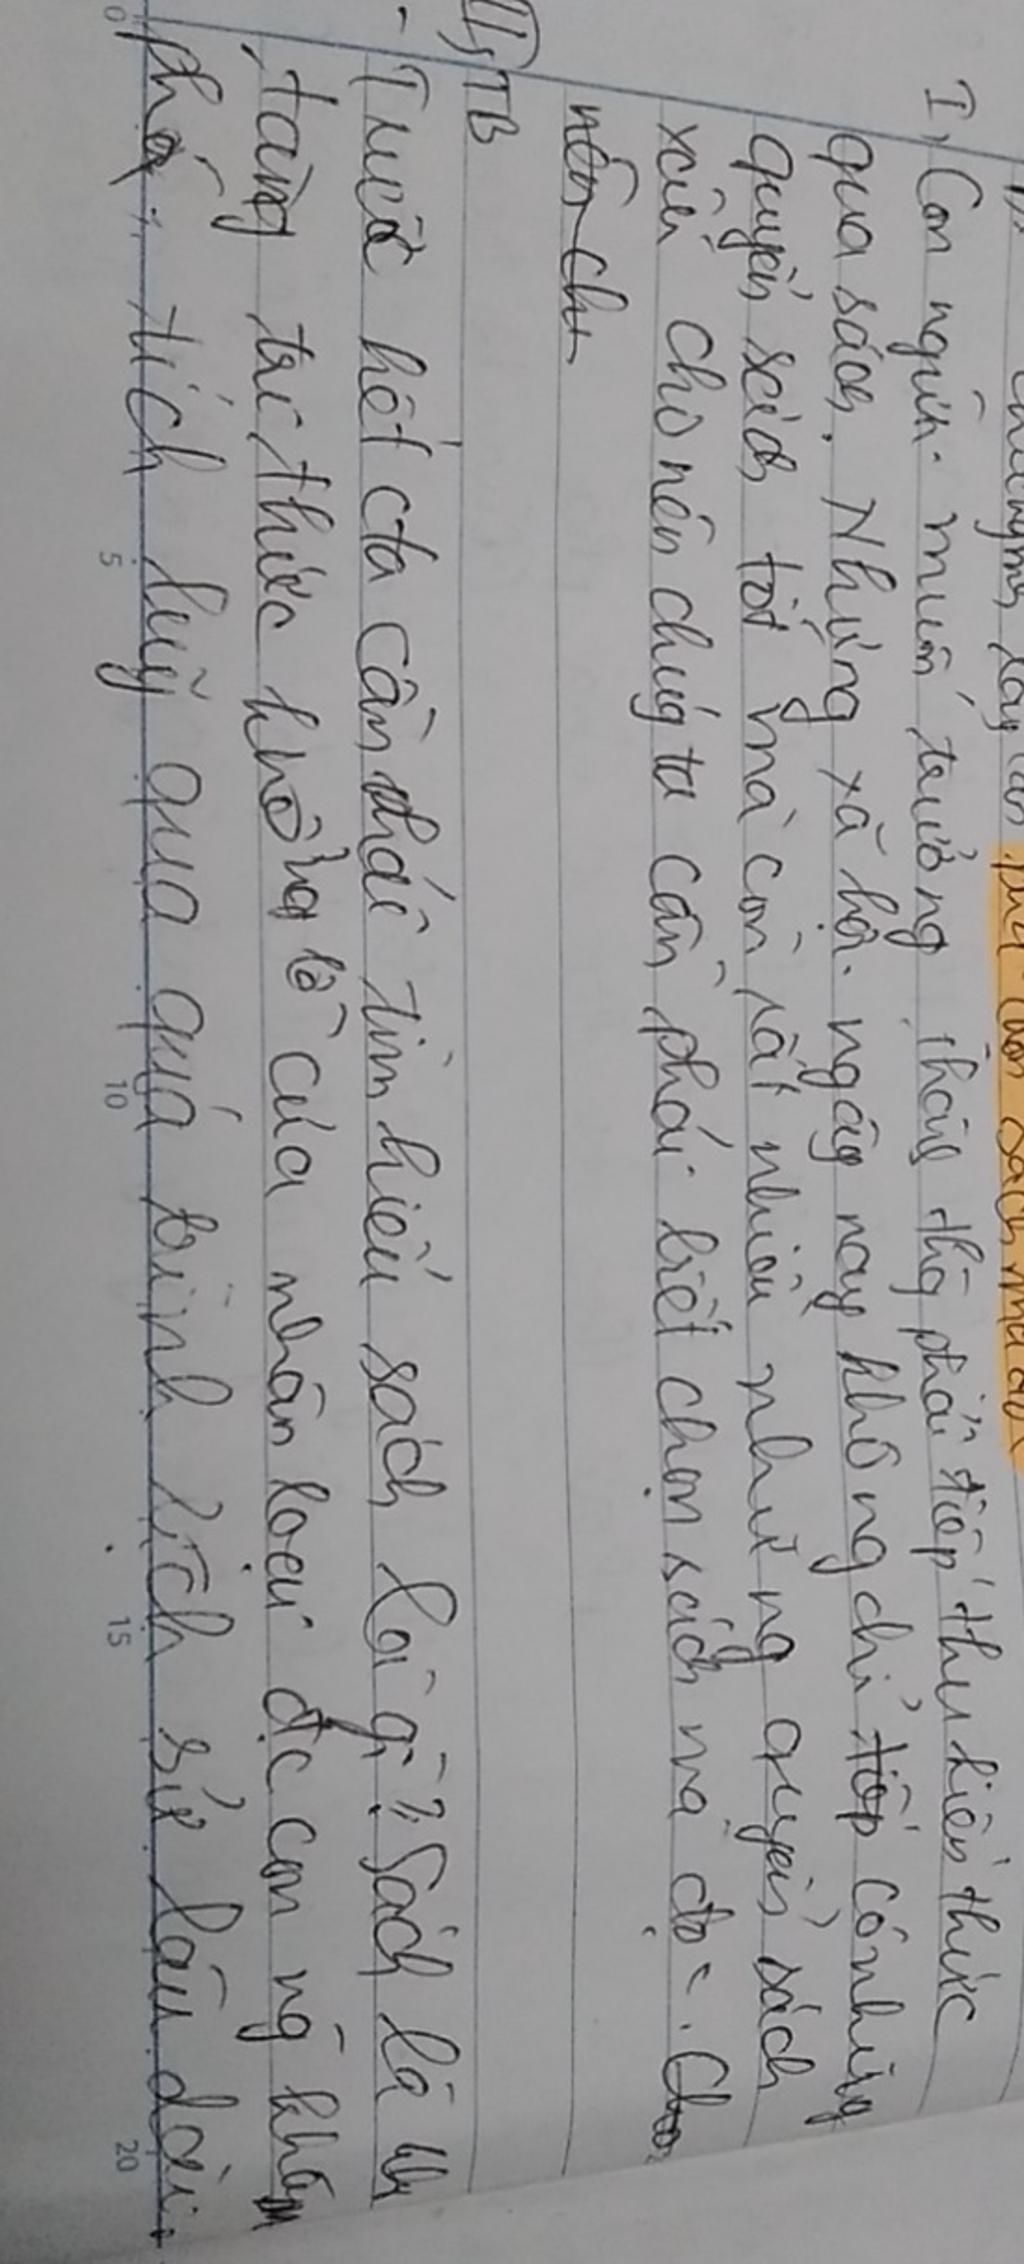 chọn sách mà đọc
I, Con người muốn trưởng thành thì phải tiếp thu kiến thức
qua sách. Nhưng xã hội ngày nay không chỉ có những
quyển sách tốt mà còn rất nhiều những quyển sách
xấu cho nên chúng ta cần phải biết chọn sách mà đọc.
nên
II, TB
- Trước hết cta cần phải tìm hiểu sách là gì? Sách là kho
tàng tri thức khổng lồ của nhân loại đc con ng khám
phá, tích luỹ qua quá trình lịch sử lâu dài.
0 5 10 15 20